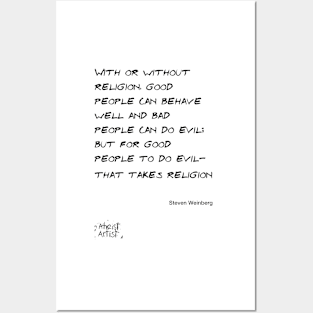 WITH OR WITHOUT
RELIGION, GOOD
PEOPLE CAN BEHAVE
WELL AND BAD
PEOPLE CAN DO EVIL;
BUT FOR GOOD
PEOPLE TO DO EVIL—
THAT TAKES RELIGION
Steven Weinberg
Artist